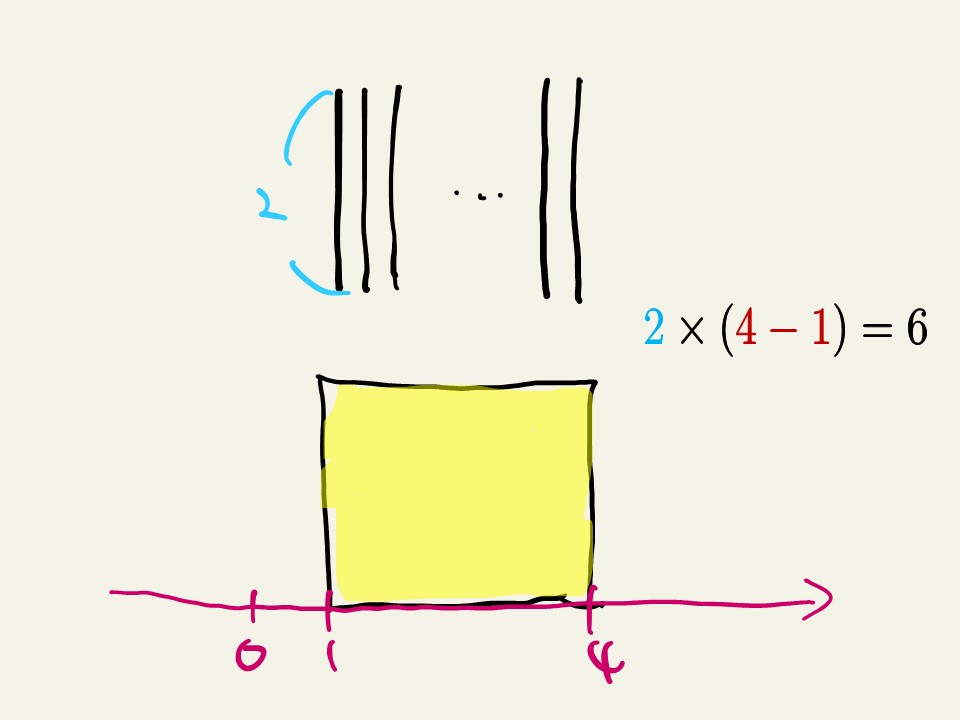 2
...
2 × (4 − 1) = 6
0 1 4